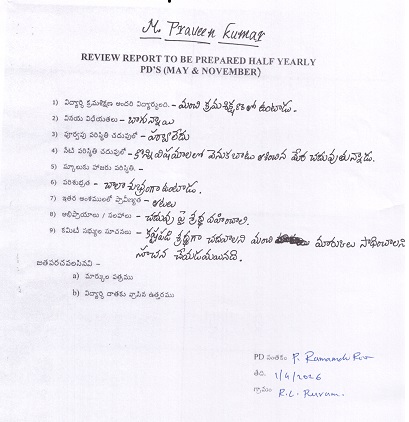 M. Praveen Kumar
REVIEW REPORT TO BE PREPARED HALF YEARLY
PD'S (MAY & NOVEMBER)
1) విద్యార్థి క్రమశిక్షణ అందరి విద్యార్థులది. - మంచి క్రమశిక్షణతో ఉంటాడు.
2) వినయ విధేయతలు - బాగున్నాయి
3) పూర్వపు పరిస్థితి చదువులో - పర్వాలేదు
4) నేటి పరిస్థితి చదువులో - కొన్ని విషయాలలో వెనుకబాటు చదువుతున్నాడు.
5) స్కూలుకు హాజరు పరిస్థితి. -
6) పరిశుభ్రత - చాలా శుభ్రంగా ఉంటాడు.
7) ఇతర అంశములలో ప్రావీణ్యత - ఆటలు
8) అభిప్రాయాలు / సలహాలు - చదువు పై శ్రద్ధ వహించాలి.
9) కమిటీ సభ్యుల సూచనలు - కష్టపడి శ్రద్ధగా చదవాలని మంచి మార్కులు సాధించాలని
సూచన చేయడమయినది.
జతపరచవలసినవి -
a) మార్కుల పత్రము
b) విద్యార్థి దాతకు వ్రాసిన ఉత్తరము
PD సంతకం P. Ramamohan Rao
తేది. 1/4/2026
గ్రామం R.L. Puram.